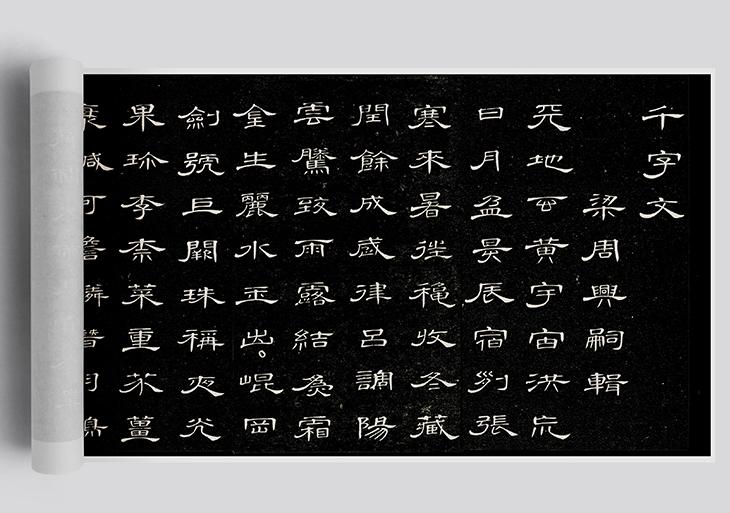 千字文
梁周興嗣輯
天地玄黃宇宙洪荒
日月盈昃辰宿列張
寒來暑往穐收冬藏
閏餘成歲律呂調陽
雲騰致雨露結為霜
金生麗水玉出崐岡
劍號巨闕珠稱夜光
果珍李柰菜重芥薑